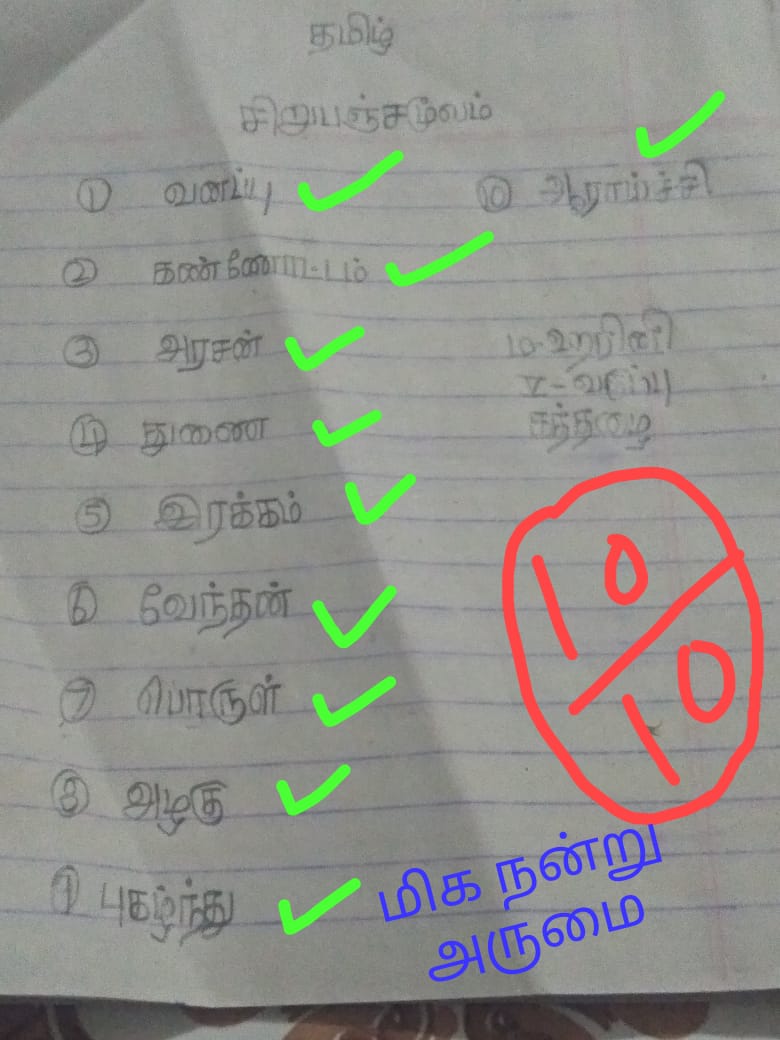 தமிழ்
சிறுபஞ்சமூலம்
① வனப்பு
② கண்ணோட்டம்
③ அரசன்
④ துணை
⑤ இரக்கம்
⑥ வேந்தன்
⑦ பொருள்
⑧ அழகு
⑨ புகழ்ந்து
⑩ ஆராய்ச்சி
V-வகுப்பு
10/10
மிக நன்று
அருமை